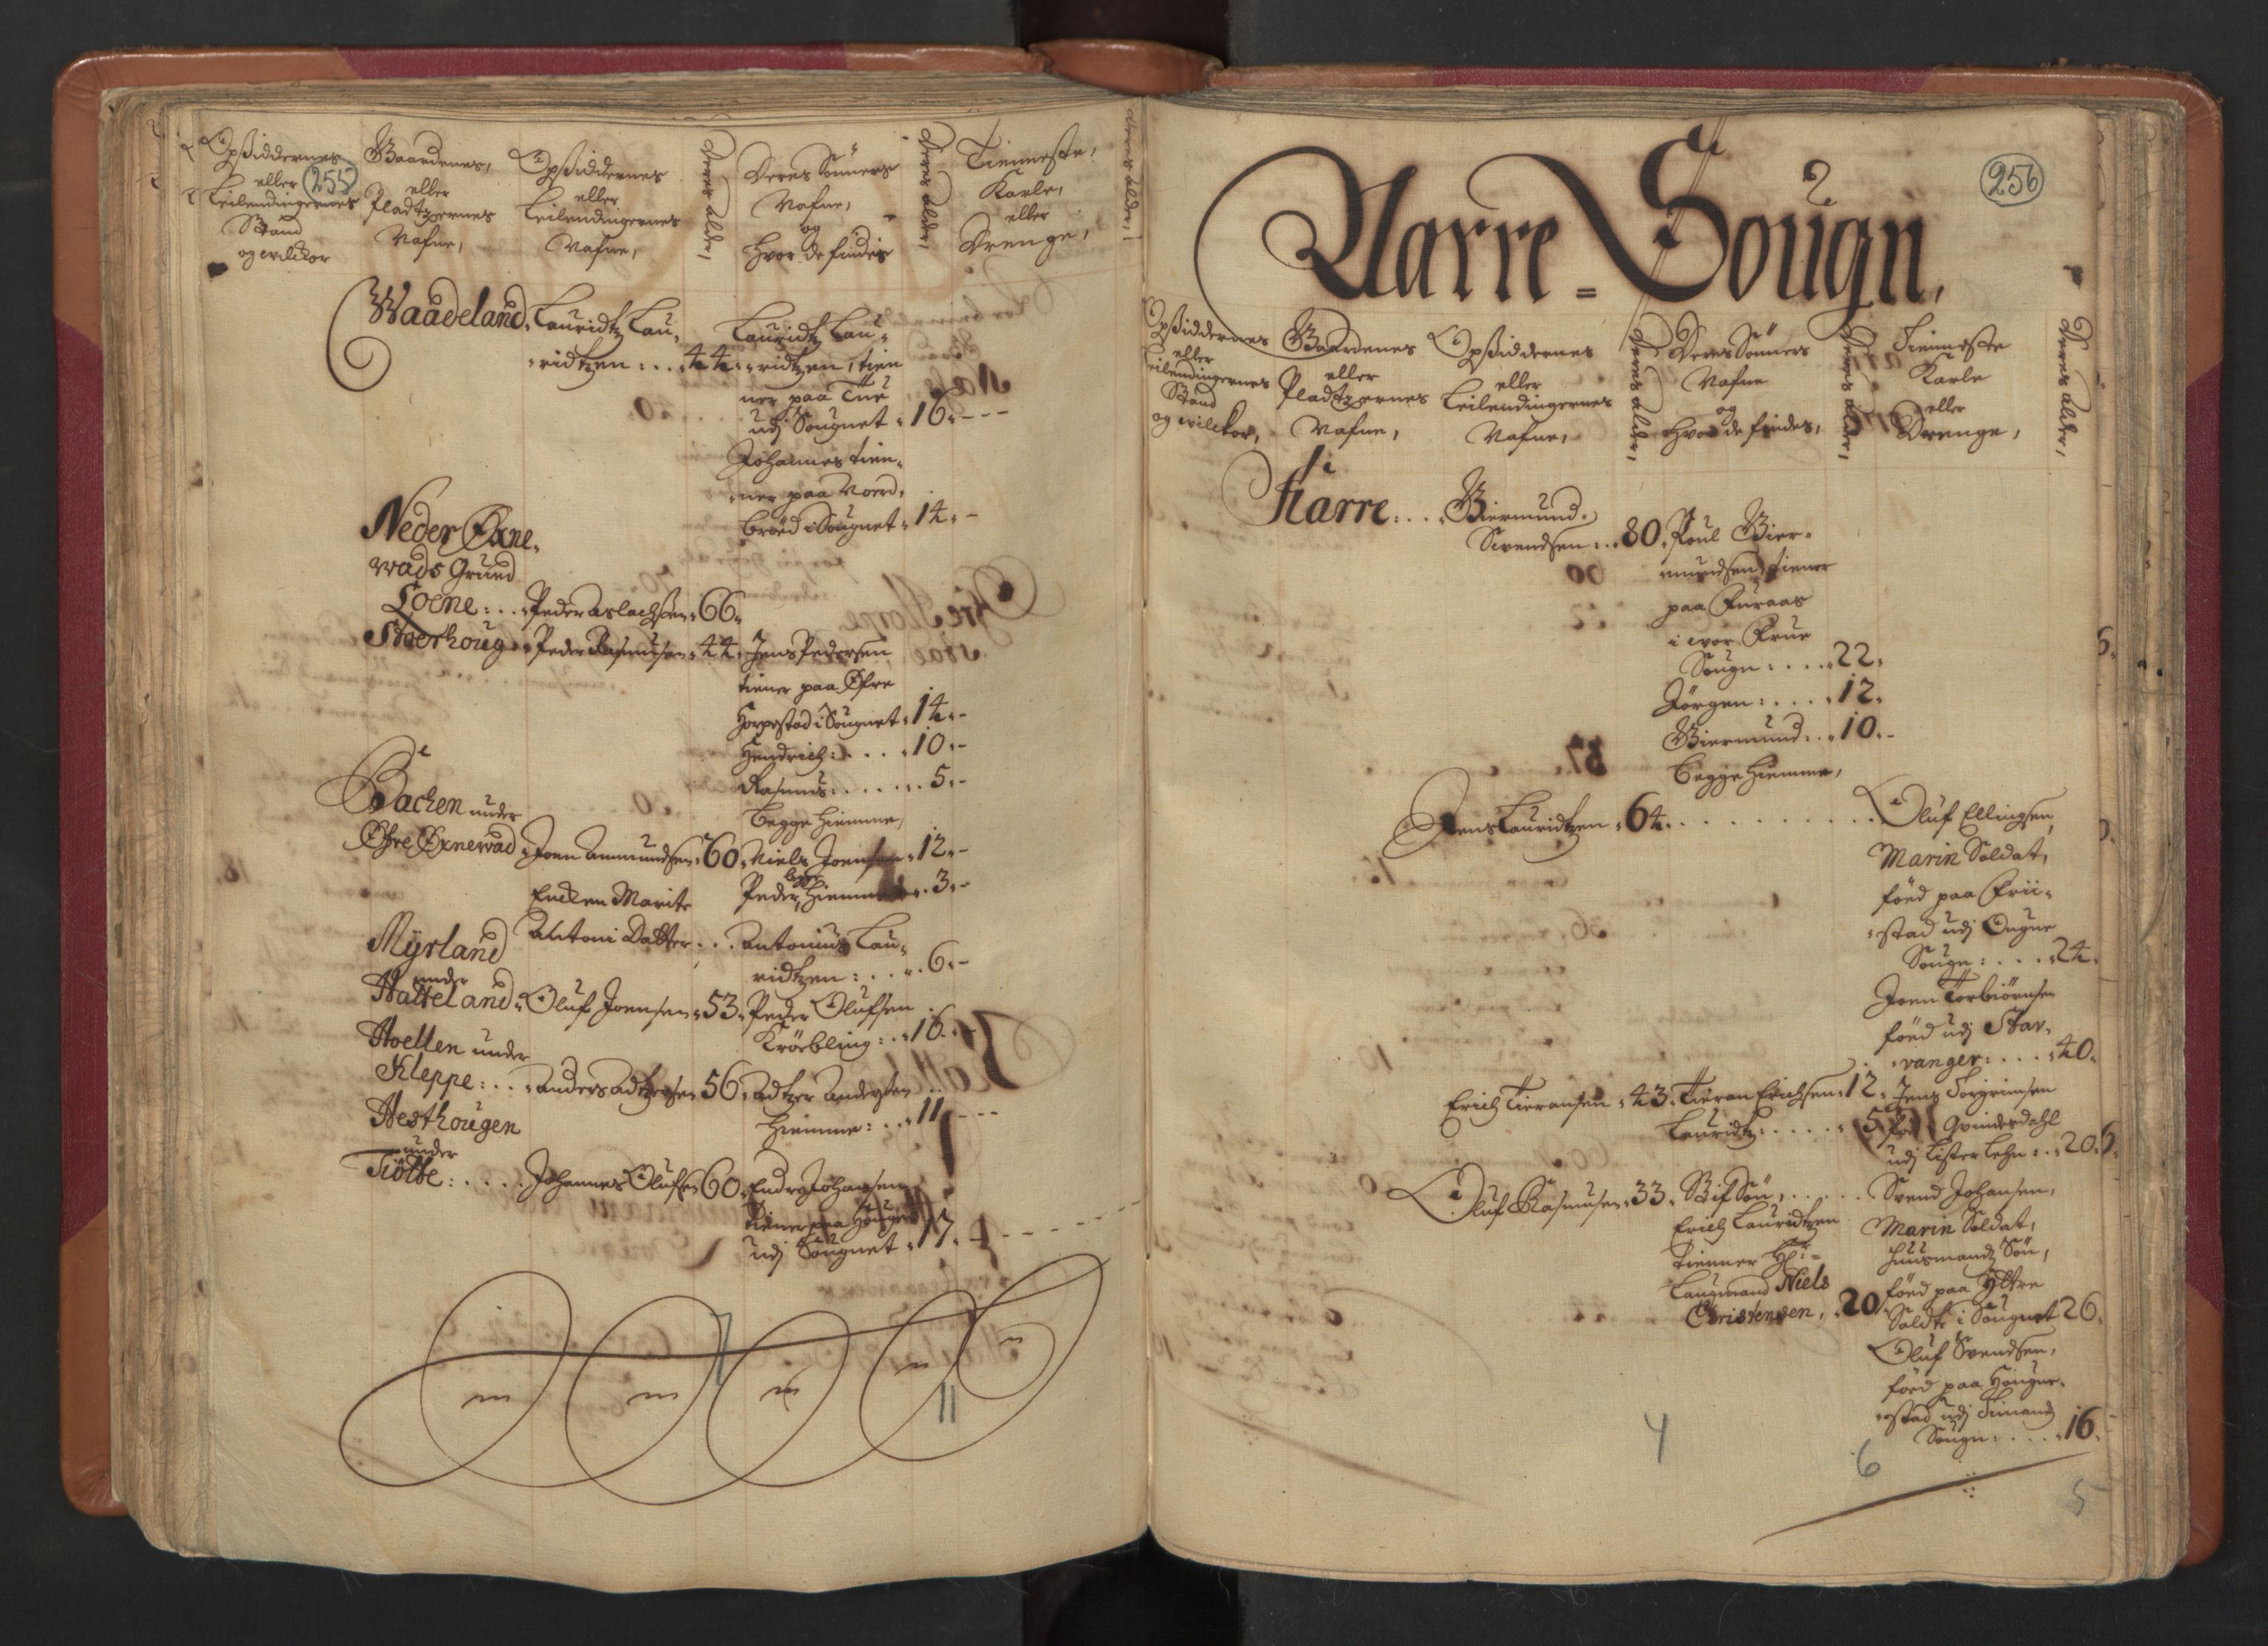 255
Opsiddernes
eller
Leilendingernes
Stand
og vilckor
Gaardenes,
eller
Pladtzernes
Nafne,
Opsiddernes
eller
Leilendingernes
Nafne,
Deres alder,
Deres Sönners
Nafne,
og
hvor de findis
Deres alder,
Tienneste
Karle,
eller
Drenge,
Deres alder,
Waadeland, Lauridtz Lau-
ridtzen: . . . 44. Lauridtz Lau-
ridtzen, tien
ner paa Tue
udj Sougnet . 16.
Johannes tien-
ner paa Nord-
bröd i Sougnet . 14.
Neder Exne-
wads Grund
Loene: . . . Peder Aslachsen . 66.
Storhoug . Peder Rasmusen . 44. Jens Pedersen
tiener paa Öfre
Horpestad i Sougnet . 14.
Hendrich: . . . . 10.
Rasmus: . . . . . . 5.
begge hiemme,
Bachen under
Öfre Exnewad . Joen Ammundsen . 60. Niels Joensen . 12.
Peder, begge hiemme . . 3.
Encken Marite
Antoni Datter . . . Antonius Lau-
ridtzen: . . . 6.
Myrland
under
Hatteland . Oluf Joensen . 53. Peder Olufsen
Kröebling: . . 16.
Hoellen under
Kleppe: . . . Anders Adtzersen 56. Adtzer Andersen
hiemme: . . 11
Hesthougen
under
Tiötte: . . . . Johannes Olufsen 60. Endre Johansen
tiener paa Houge
udj Sougnet . 17.
7
11
256
Narre-Sougn,
Opsiddernes
eller
Leilendingernes
Stand
og vilckor,
Gaardenes
eller
Pladtzernes
Nafne,
Opsiddernes
eller
Leilendingernes
Nafne,
Deres alder,
Deres Sönners
Nafne
og
hvor de findes,
Deres alder,
Tienneste
Karle
eller
Drenge,
Deres alder,
Harre: . . . Biermund
Svendsen: . . 80. Poul Bier-
mundsen, tiener
paa Furaas
i vor Frue
Sougn: . . . . 22.
Jörgen: . . . . 12.
Biermund: . . 10.
begge hiemme,
Jens Lauridtzen . 64. . . . . . . . . . . Oluf Ellingsen
Marin Soldat,
föed paa Frii-
stad udj Ougne
Sougn: . . . . 24.
Joen Torbiörnsen
föed udj Star-
vanger: . . . . 40.
Erich Tieransen . 43. Tieran Erichsen . 12. Jens Torgrimsen
Lauridtz: . . . . . 5. Gvindesdahl
udj Lister Lehn: . . 20.
Oluf Rasmusen . 33. Stif Sön, . . . . Svend Johansen,
Erich Lauridtzen
tienner Hr:
Laugmand Niels
Christensen, . 20
Marin Soldat,
huusmandz Sön,
föed paa Yttre
Soldte i Sougnet 26.
Oluf Svendsen,
föed paa Hougne-
stad udj Timands
Sougn: . . . . 16.
4
6
5